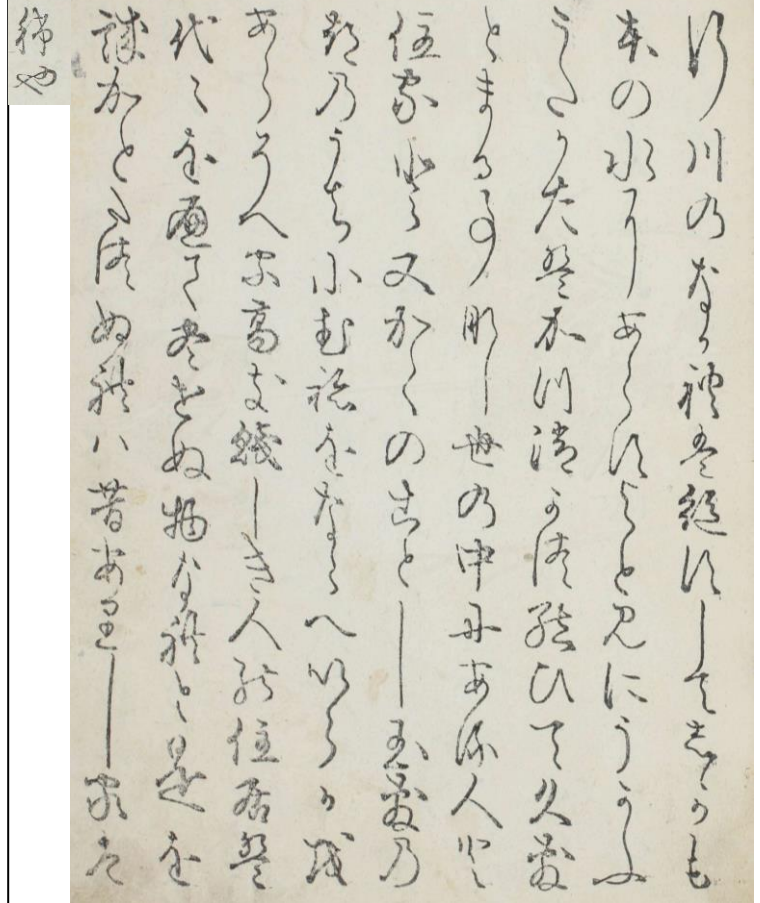 行川のなかれは絶すしてしかも
本の水にあらすよとみにうかふ
うたかたはかつ消かつ結ひて久敷
とまる事なし世の中にある人と
住家と又かくのことし玉敷の
都のうちにむねをならへいらかを
あらそへ高き賤しき人の住居は
代々をへてつきせぬ物なれと是を
誠かとたつぬれハ昔ありし家は
稀也